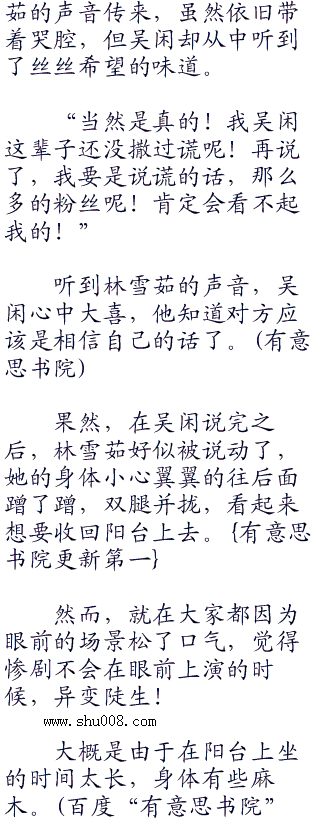 茹的声音传来，虽然依旧带
着哭腔，但吴闲却从中听到
了丝丝希望的味道。
“当然是真的！我吴闲
这辈子还没撒过谎呢！再说
了，我要是说谎的话，那么
多的粉丝呢！肯定会看不起
我的！”
听到林雪茹的声音，吴
闲心中大喜，他知道对方应
该是相信自己的话了。(有意
思书院)
果然，在吴闲说完之
后，林雪茹好似被说动了，
她的身体小心翼翼的往后面
蹭了蹭，双腿并拢，看起来
想要收回阳台上去。{有意思
书院更新第一}
然而，就在大家都因为
眼前的场景松了口气，觉得
惨剧不会在眼前上演的时
候，异变陡生！
www.shu008.com
大概是由于在阳台上坐
的时间太长，身体有些麻
木。(百度“有意思书院”